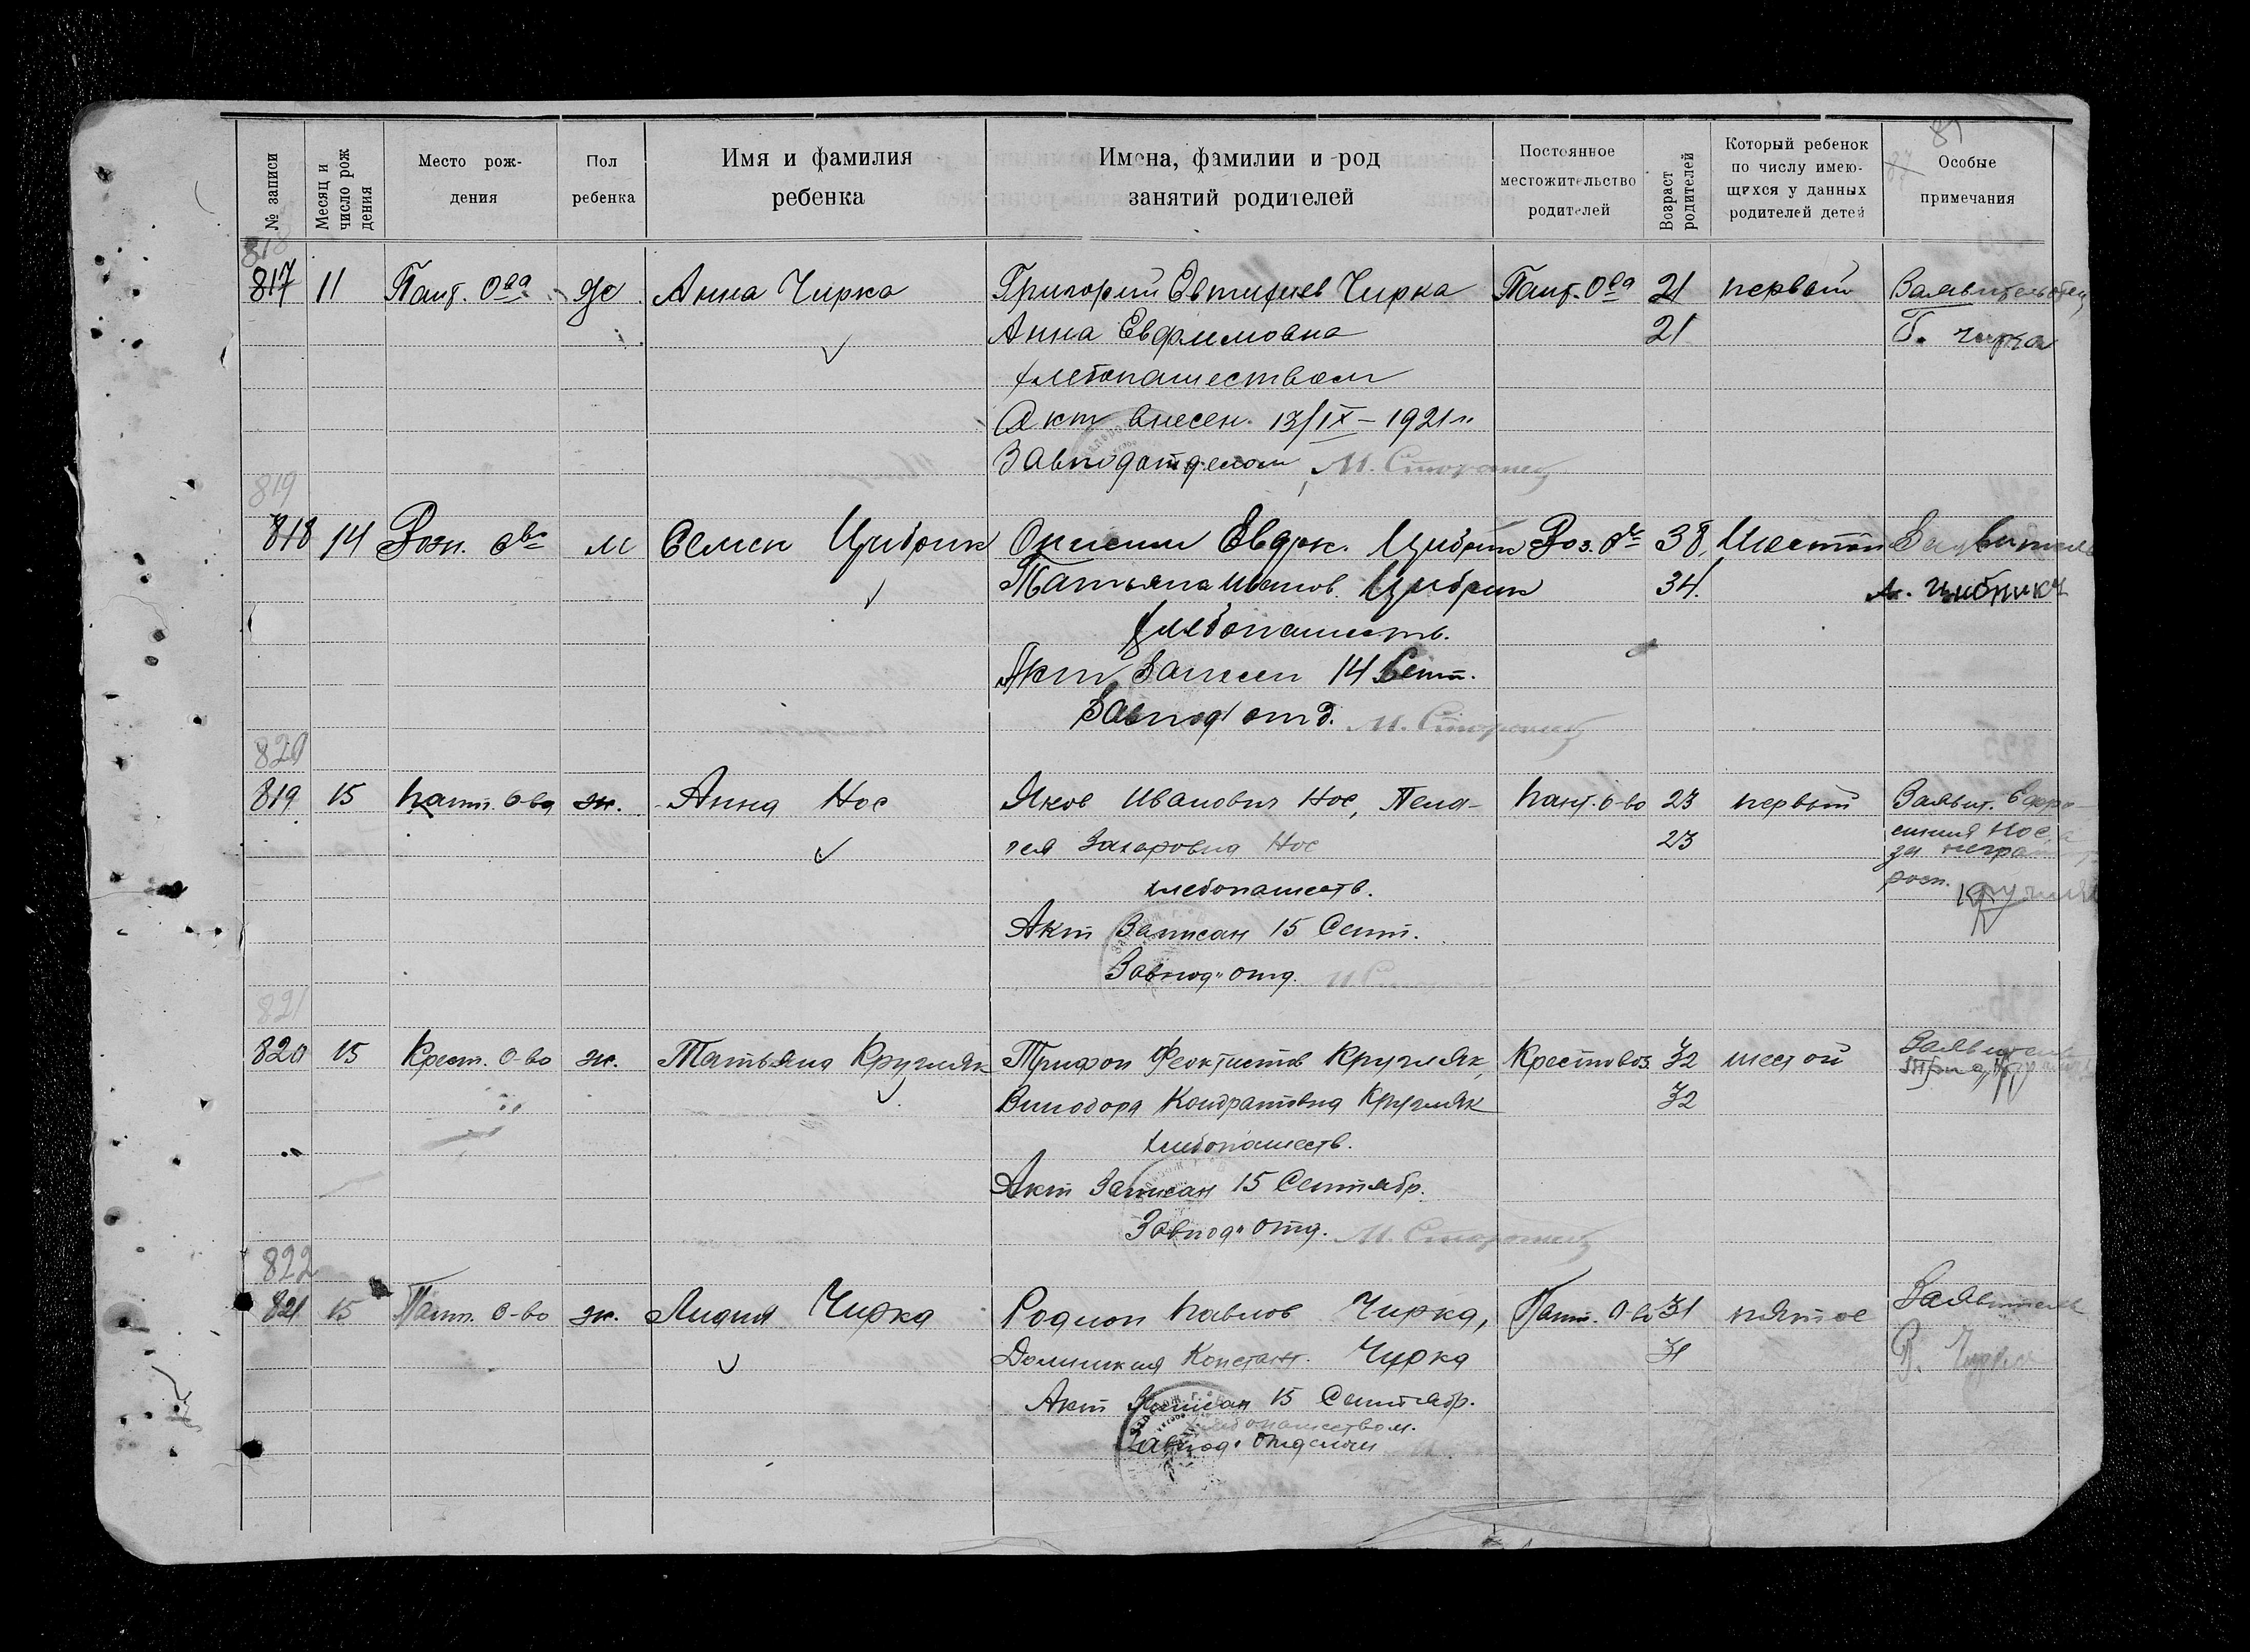 81
87
№ записи
Месяц и число рож дения
Место рож-
дения
Пол
ребенка
Имя и фамилия
ребенка
Имена, фамилии и род
занятий родителей
Постоянное
местожительство
родителей
Возраст родителей
Который ребенок
по числу имею-
щихся у данных
родителей детей
Особые
примечания
818
817 11 Пант. Ова ж Анна Чирка Григорий Евтифиев Чирка Пант. Ова 21 первый Заявитель отец
Анна Евфимовна 21 Г. Чирка
хлебопашеством
Акт внесен 13/IX – 1921 г.
Завподотделом М.
819
818 14 Воз. ове м Семен Цибрик Онисим Евдок. Цибрик Воз. Ове 38, Шестой Заявитель
Татьяна Иванов. Цибрик 34.
хлебопашеств.
Акт Записан 14 Сент.
Завпод отд. М.
820
819 15 Пант. о-ва ж. Анна Нос Яков Иванович Нос, Пела- Пант. о-во 23 первый Заявит. Евфро-
гея Захаровна Нос 23 синия Нос, а
за неграмот
хлебопашеств. росп.
Акт Записан 15 Сент.
Завпод" отд.
821
820 15 Крест. о-во ж. Татьяна Кругляк Трифон Феоктистов Кругляк, Крестовоз. 32 шестой Заявитель
Винодора Кондратовна Кругляк 32
хлебопашеств.
Акт Записан 15 Сентябр.
Завпод" отд. М.
822
821 15 Пант. о-во ж. Лидия Чирка Родион Павлов Чирка, Пант. О-во 31 пятое Заявитель
Домникия Констант. Чирка 31 Р. Чирка
Акт Записан 15 Сентябр.
хлебопашеством.
Завпод. отделом